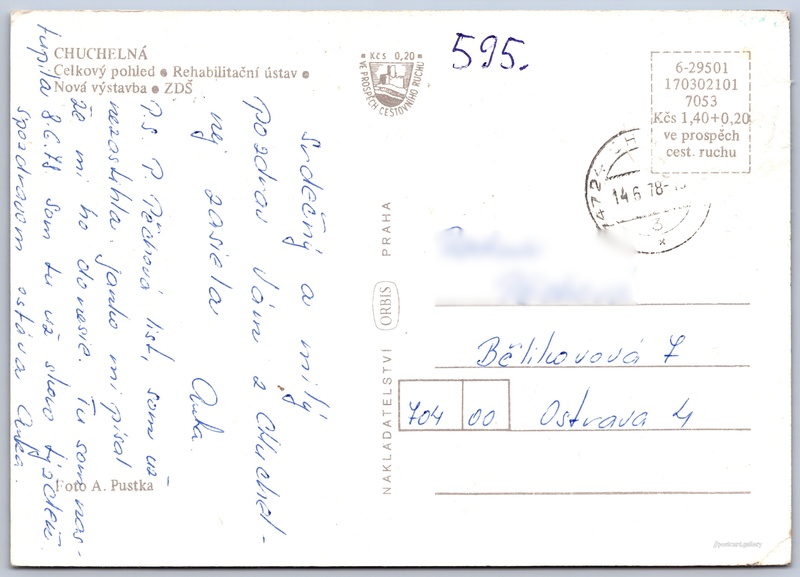 CHUCHELNÁ
Celkový pohled • Rehabilitační ústav •
Nová výstavba • ZDŠ
Kčs 0,20
VE PROSPĚCH CESTOVNÍHO RUCHU
595.
6-29501
170302101
7053
Kčs 1,40+0,20
ve prospěch
cest. ruchu
14.6.78-
3
Srdečný a milý
pozdrav Vám z Chuchel-
nej zasiela
Anka.
P.S. P. Pěchová list, som už
nezastihla. Janko mi písal
že mi ho donesie. Tu som nas-
tupila 8.6.78 som tu už skoro týždeň.
S pozdravom ostáva Anka.
NAKLADATELSTVÍ ORBIS PRAHA
Bělikovová 7
704 00 Ostrava 4
Foto A. Pustka
//postcard.gallery